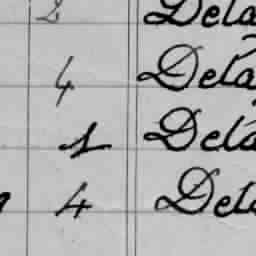 2 Dela
4 Dela
1 Dela
4 Dela